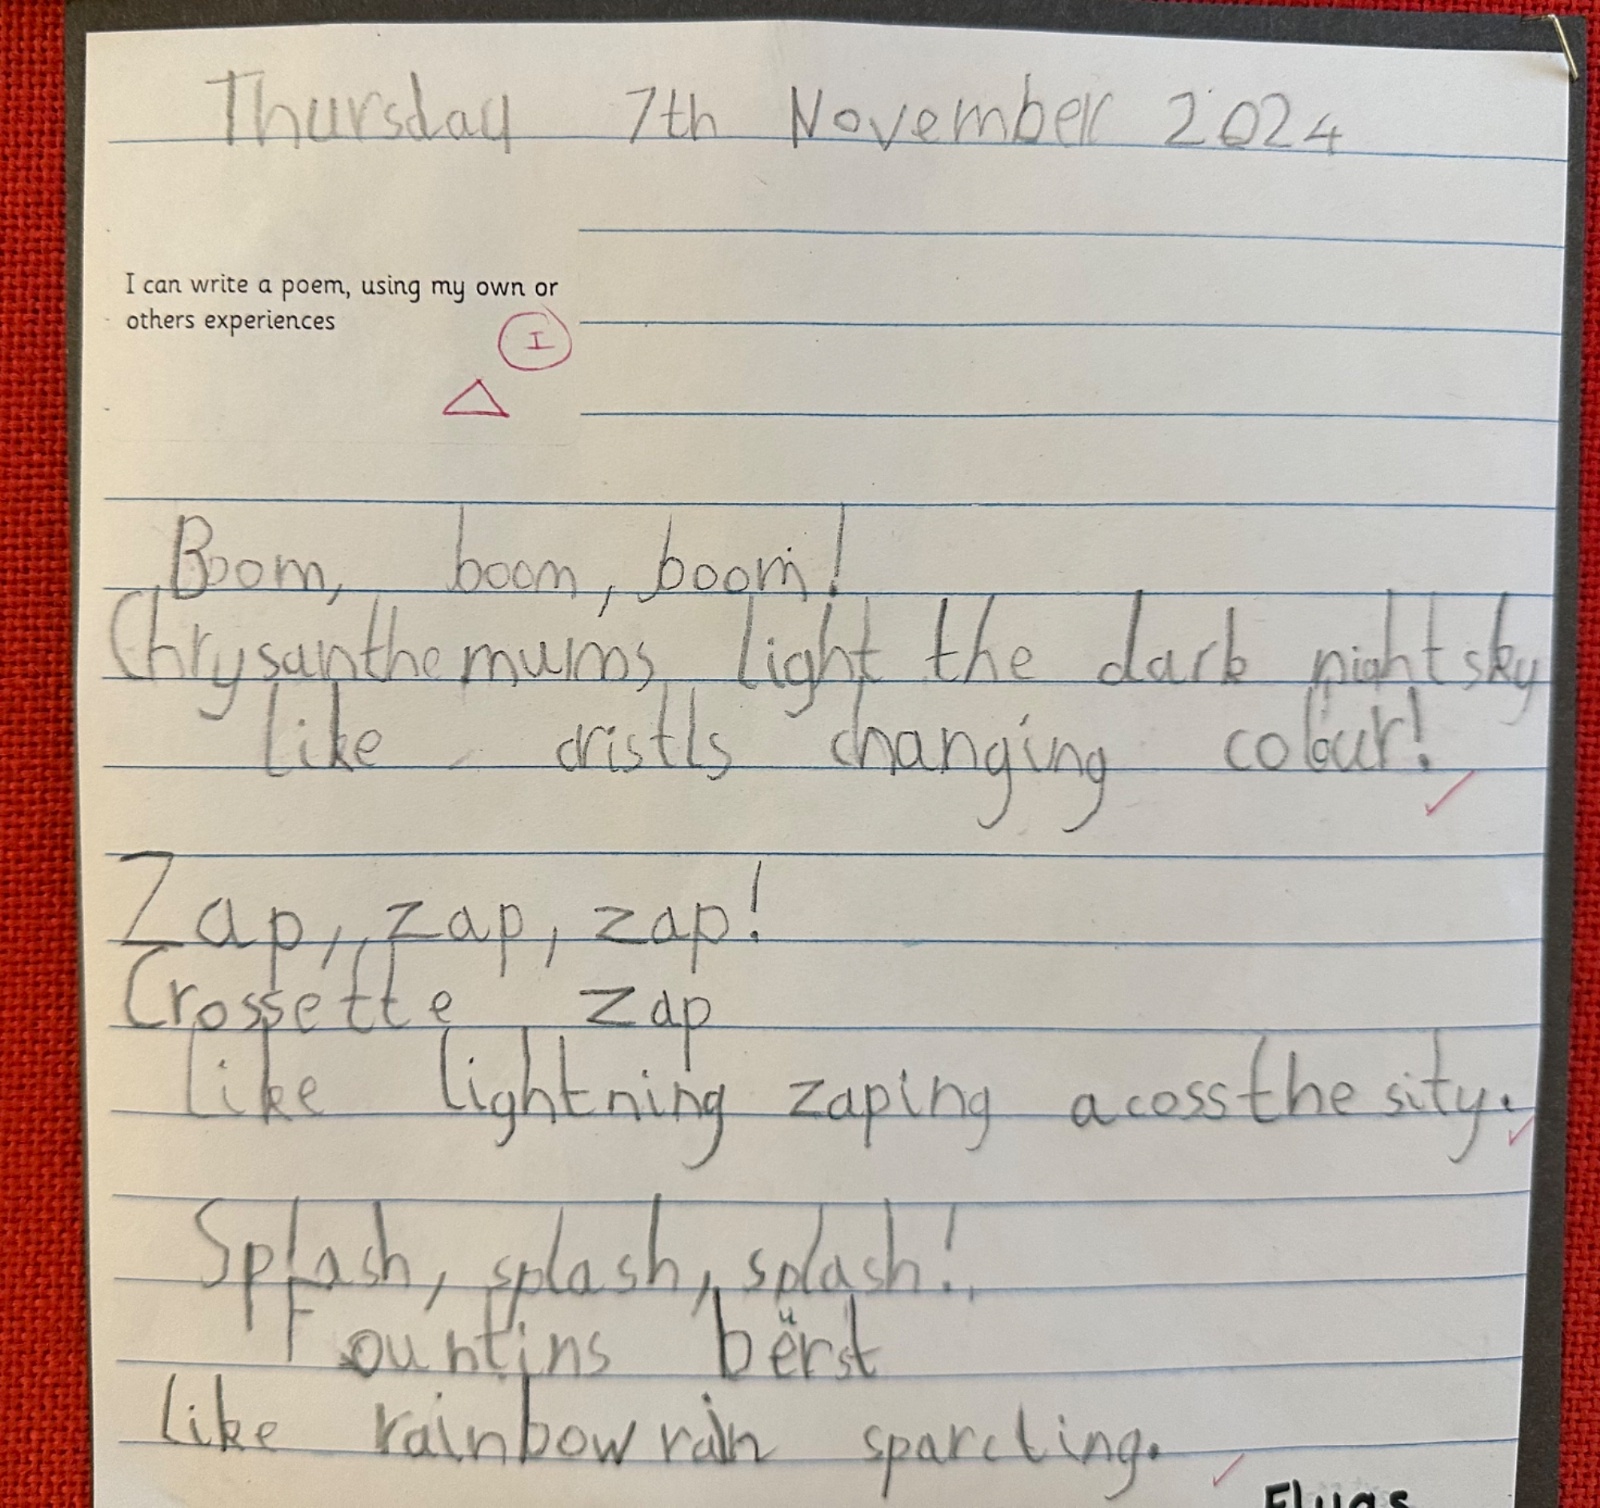 Thursday 7th November 2024
I can write a poem, using my own or
others experiences
I
Boom, boom, boom!
Chrysanthemums light the dark night sky
like cristls changing colour!
Zap, zap, zap!
Crossette zap
like lightning zaping acoss the sity.
Splash, splash, splash!
Fountins berst
like rainbow rain sparcling.